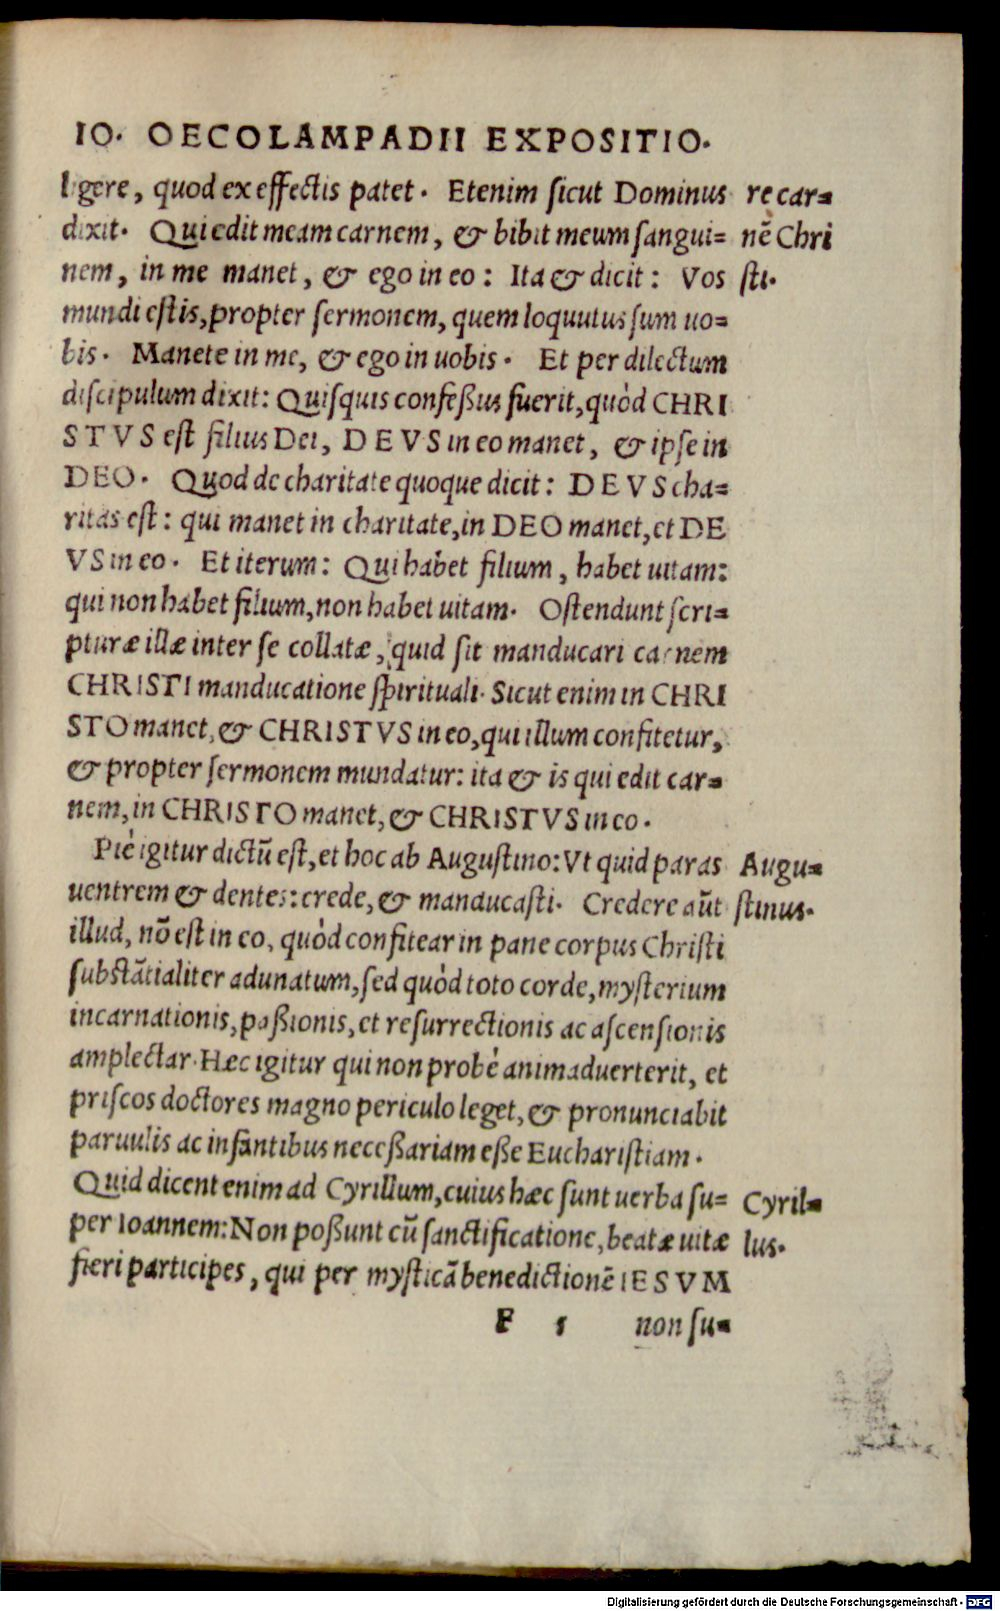 IO. OECOLAMPADII EXPOSITIO.
ligere, quod ex effectis patet. Etenim sicut Dominus
dixit. Qui edit meam carnem, & bibit meum sangui=
nem, in me manet, & ego in eo: Ita & dicit: Vos
mundi estis, propter sermonem, quem loquutus sum uo=
bis. Manete in me, & ego in uobis. Et per dilectum
discipulum dixit: Quisquis confeßus fuerit, quòd CHRI
STVS est filius Dei, DEVS in eo manet, & ipse in
DEO. Quod de charitate quoque dicit: DEVS cha=
ritas est: qui manet in charitate, in DEO manet, et DE
VS in eo. Et iterum: Qui habet filium, habet uitam:
qui non habet filium, non habet uitam. Ostendunt scri=
pturæ illæ inter se collatæ, quid sit manducari carnem
CHRISTI manducatione spirituali. Sicut enim in CHRI
STO manet, & CHRISTVS in eo, qui illum confitetur,
& propter sermonem mundatur: ita & is qui edit car=
nem, in CHRISTO manet, & CHRISTVS in eo.
Piè igitur dictũ est, et hoc ab Augustino: Vt quid paras
uentrem & dentes: crede, & manducasti. Credere aũt
illud, nõ est in eo, quòd confitear in pane corpus Christi
substãtialiter adunatum, sed quòd toto corde, mysterium
incarnationis, paßionis, et resurrectionis ac ascensionis
amplectar. Hæc igitur qui non probè animaduerterit, et
priscos doctores magno periculo leget, & pronunciabit
paruulis ac infantibus neceßariam eße Eucharistiam.
Quid dicent enim ad Cyrillum, cuius hæc sunt uerba su=
per Ioannem: Non poßunt cũ sanctificatione, beatæ uitæ
fieri participes, qui per mysticã benedictionẽ IESVM
F 5 non su=
re car=
nẽ Chri
sti.
Augu=
stinus.
Cyril=
lus.
Digitalisierung gefördert durch die Deutsche Forschungsgemeinschaft - DFG